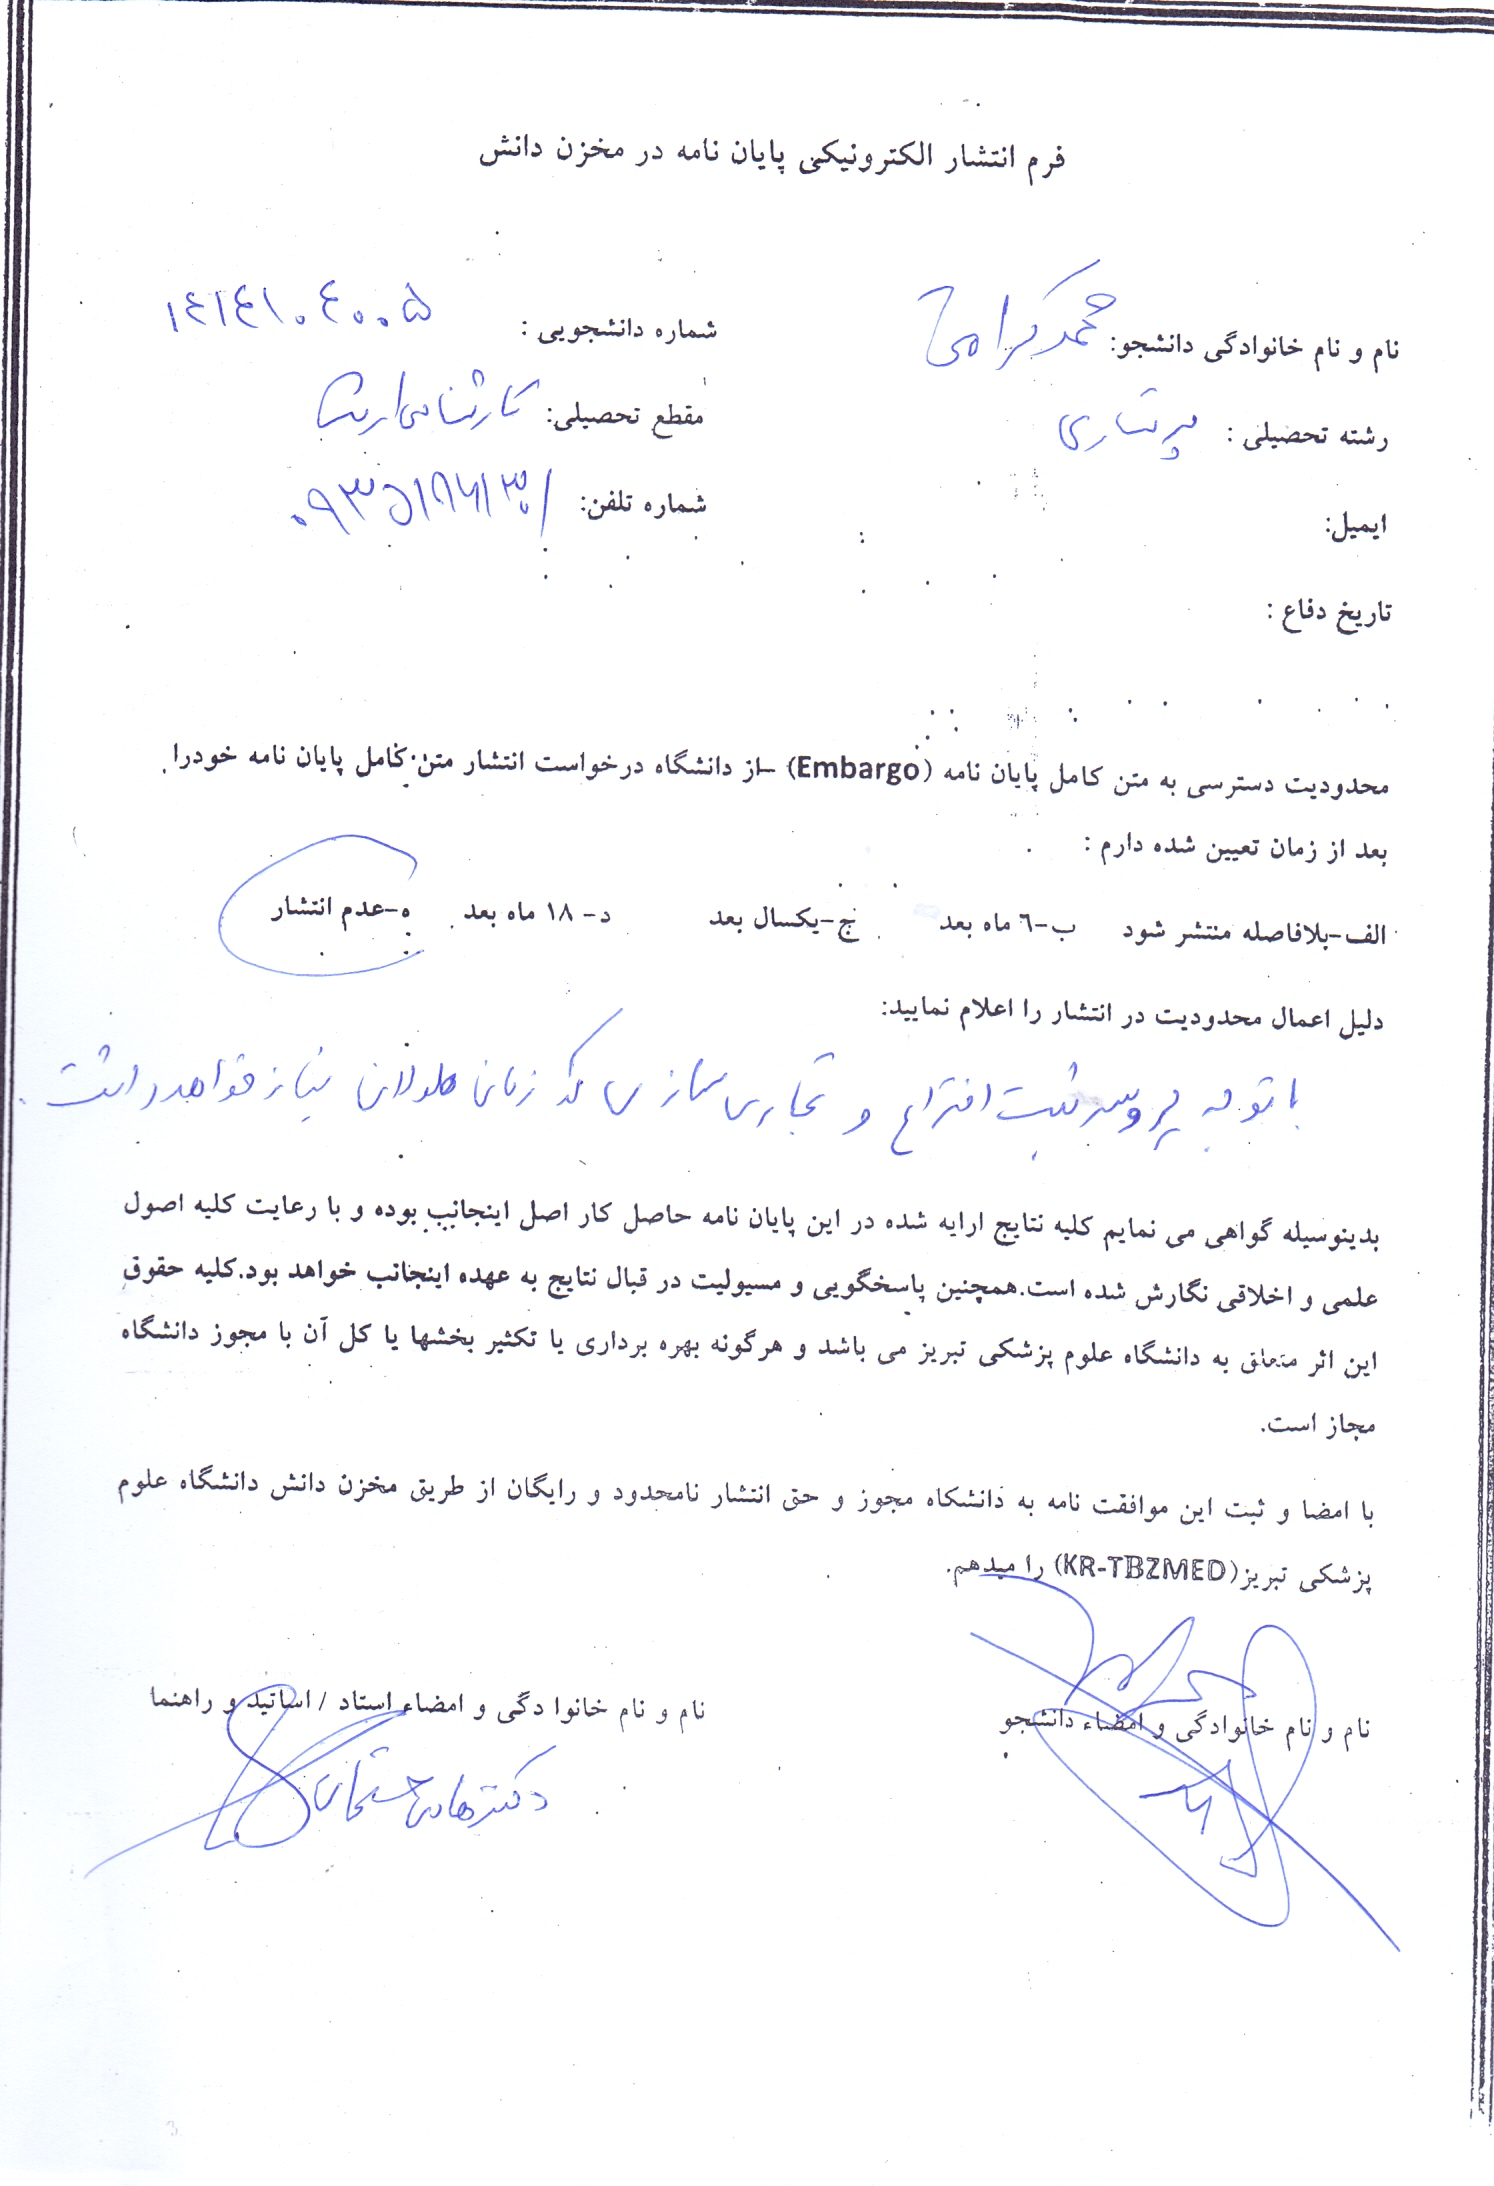 فرم انتشار الکترونیکی پایان نامه در مخزن دانش
نام و نام خانوادگی دانشجو: محمد کرامتی شماره دانشجویی : ۱۴۱۴۱۰۴۰۰۵
رشته تحصیلی : پرستاری مقطع تحصیلی: کارشناسی ارشد
ایمیل: شماره تلفن:
تاریخ دفاع :
محدودیت دسترسی به متن کامل پایان نامه (Embargo) –از دانشگاه درخواست انتشار متن کامل پایان نامه خودرا
بعد از زمان تعیین شده دارم :
الف-بلافاصله منتشر شود ب-۶ ماه بعد ج-یکسال بعد د- ۱۸ ماه بعد ه-عدم انتشار
دلیل اعمال محدودیت در انتشار را اعلام نمایید:
با توجه پروسه ثبت اختراع و تجاری سازی که زمان طولانی نیاز خواهد داشت.
بدینوسیله گواهی می نمایم کلیه نتایج ارایه شده در این پایان نامه حاصل کار اصل اینجانب بوده و با رعایت کلیه اصول
علمی و اخلاقی نگارش شده است.همچنین پاسخگویی و مسیولیت در قبال نتایج به عهده اینجانب خواهد بود.کلیه حقوق
این اثر متعلق به دانشگاه علوم پزشکی تبریز می باشد و هرگونه بهره برداری یا تکثیر بخشها یا کل آن با مجوز دانشگاه
مجاز است.
با امضا و ثبت این موافقت نامه به دانشکاه مجوز و حق انتشار نامحدود و رایگان از طریق مخزن دانش دانشگاه علوم
پزشکی تبریز(KR-TBZMED) را میدهم.
نام و نام خانوادگی و امضاء دانشجو نام و نام خانوا دگی و امضاء استاد / اساتید و راهنما
دکتر هادی